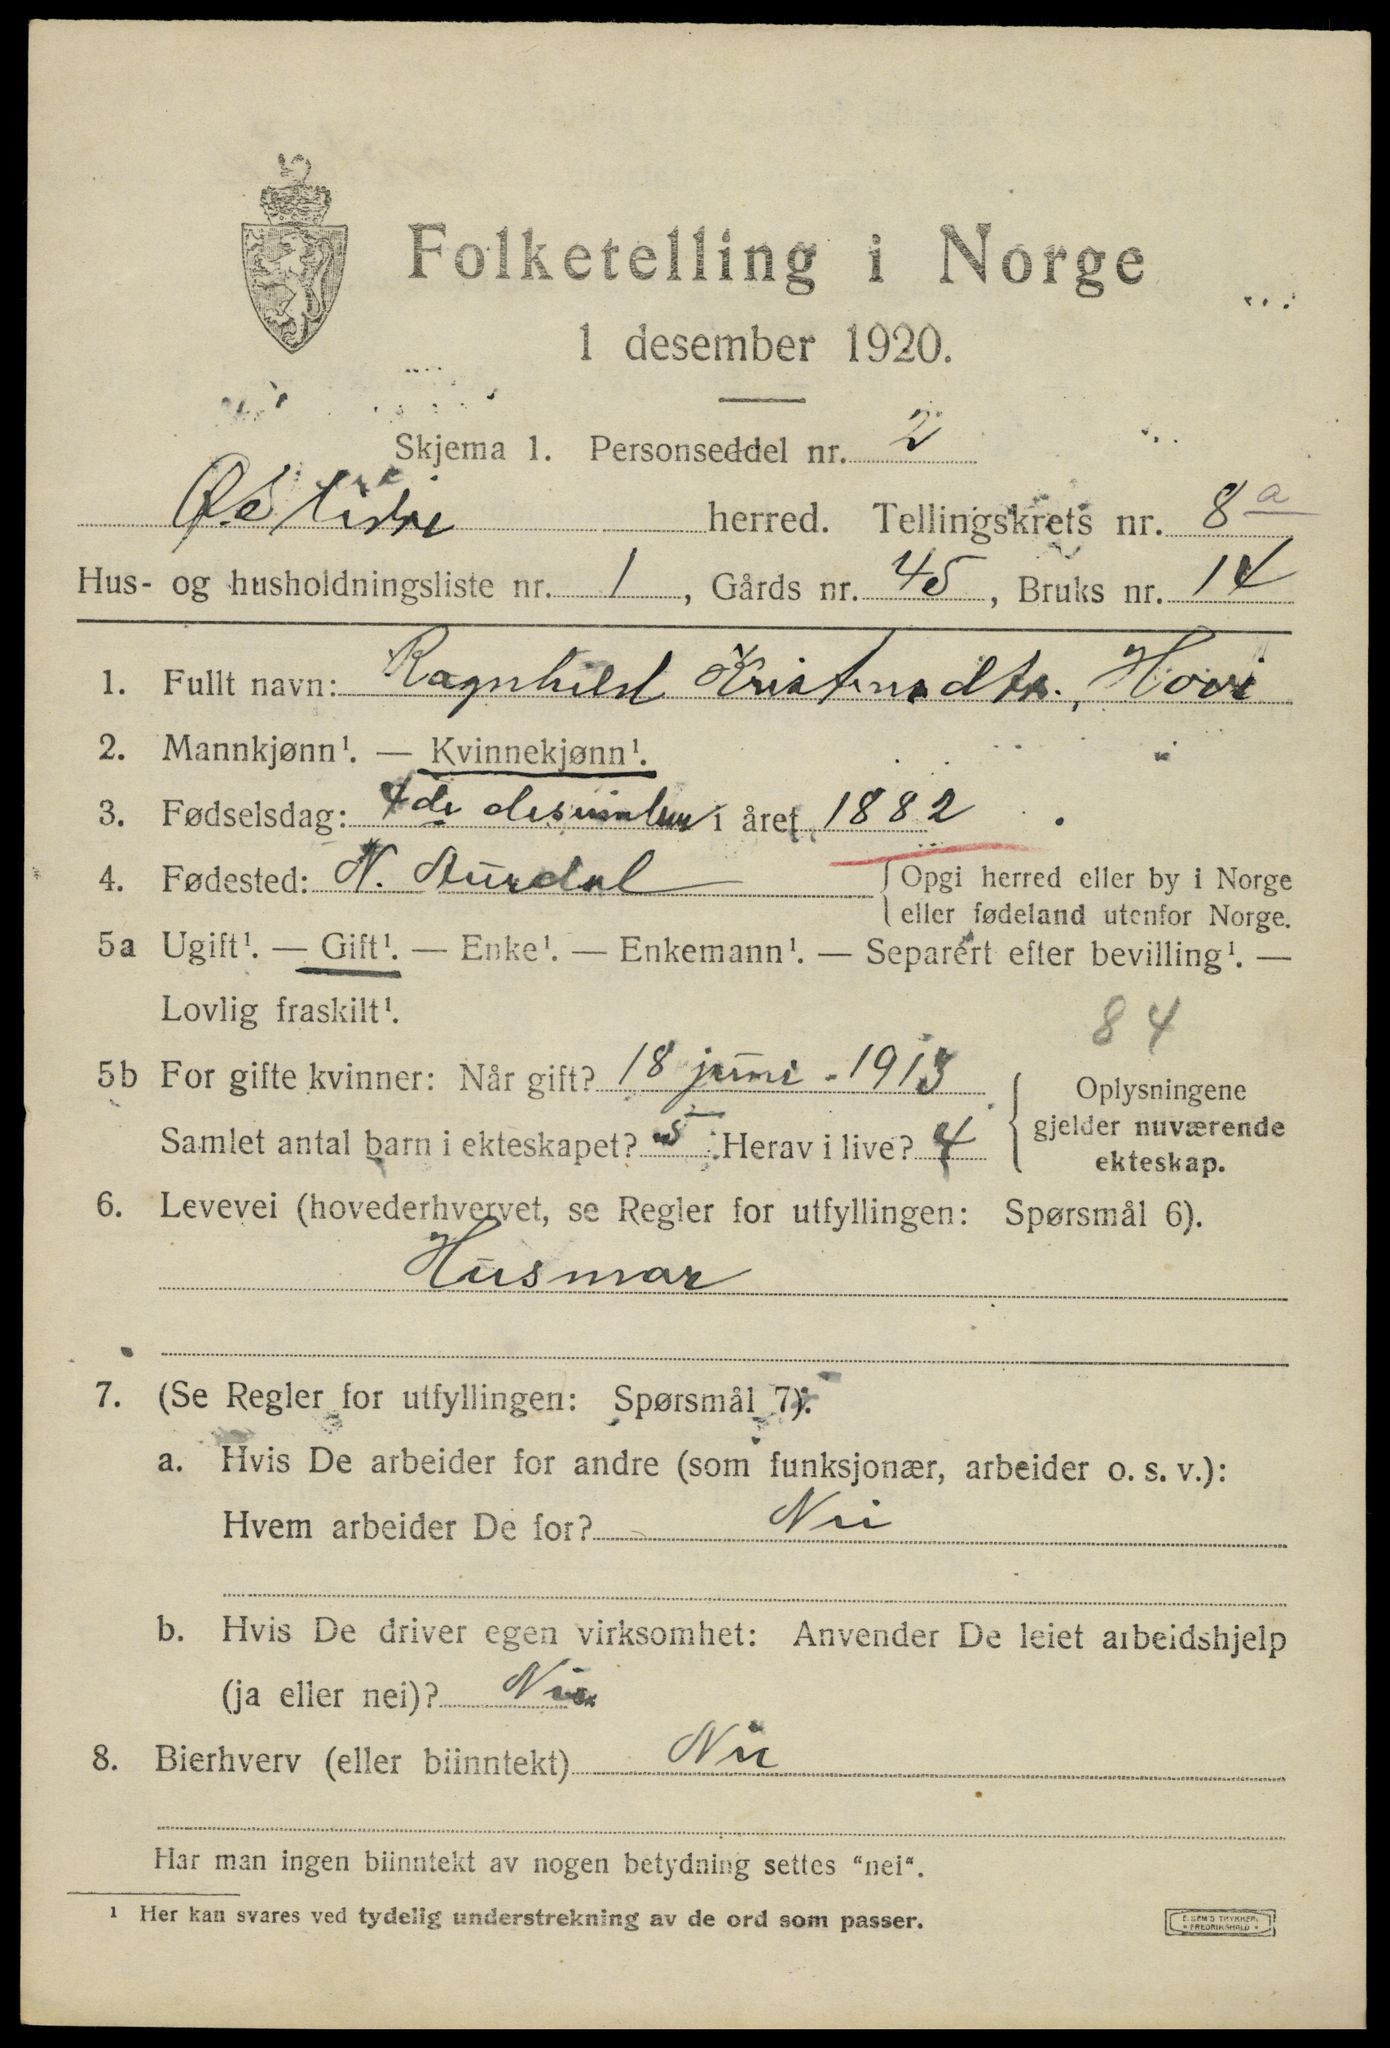 Folketelling i Norge
1 desember 1920.
Skjema 1. Personseddel nr. 2
Ø. Slidre herred. Tellingskrets nr. 8 a
Hus- og husholdningsliste nr. 1, Gårds nr. 45, Bruks nr. 14
1. Fullt navn: Ragnhild Hovi
2. Mannkjønn¹. — Kvinnekjønn¹.
3. Fødselsdag: 4de desember i året 1882
4. Fødested: N. Aurdal {Opgi herred eller by i Norge
eller fødeland utenfor Norge.
5a Ugift¹. — Gift¹. — Enke¹. — Enkemann¹. — Separert efter bevilling¹. —
Lovlig fraskilt¹.
84
5b For gifte kvinner: Når gift? 18 juni - 1913 { Oplysningene
Samlet antal barn i ekteskapet? 5 Herav i live? 4 gjelder nuværende
ekteskap.
6. Levevei (hovederhvervet, se Regler for utfyllingen: Spørsmål 6).
Husmor
7. (Se Regler for utfyllingen: Spørsmål 7):
a. Hvis De arbeider for andre (som funksjonær, arbeider o. s. v.):
Hvem arbeider De for? Nei
b. Hvis De driver egen virksomhet: Anvender De leiet arbeidshjelp
(ja eller nei)? Nei
8. Bierhverv (eller biinntekt) Nei
Har man ingen biinntekt av nogen betydning settes “nei“.
¹ Her kan svares ved tydelig understrekning av de ord som passer.
E. SEM'S TRYKKERI
* FREDRIKSHALD *